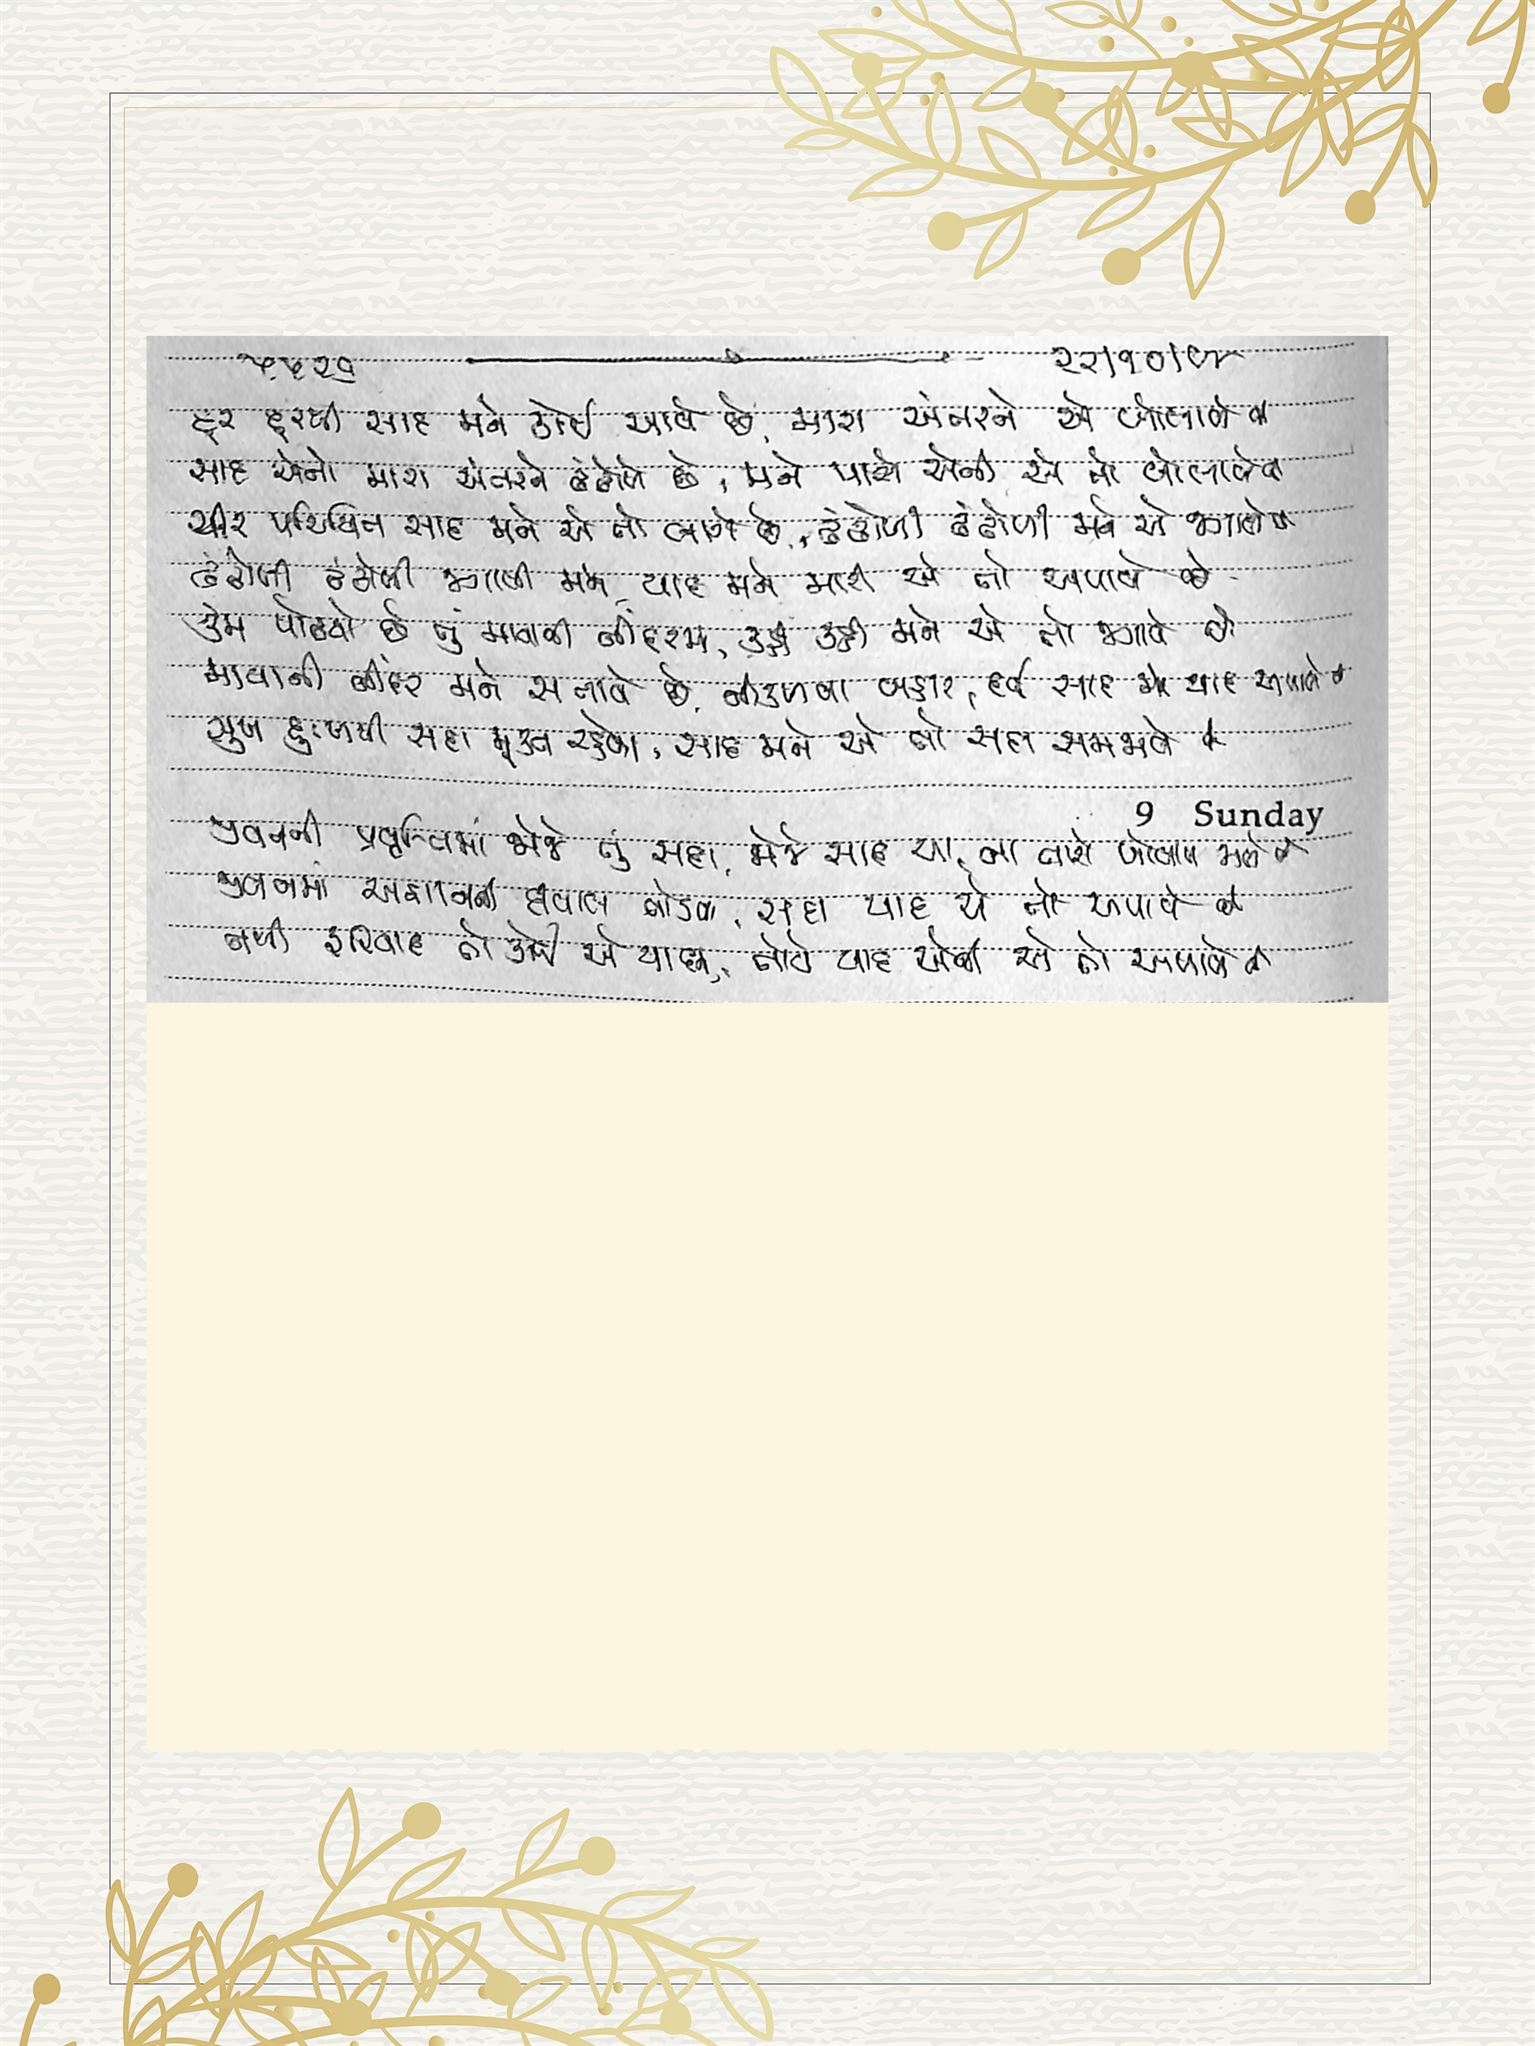 ૨૨/૧૦/૯૮
દૂર દૂરથી સાદ મને કોઈ આવે છે, મારા અંતરને એ બોલાવે છે
સાદ એનો મારા અંતરને ઢંઢોળે છે, મને પાસે એની એ તો બોલાવે છે
ચીર પરિચિત સાદ મને એ તો લાગે છે, ઢંઢોળી ઢંઢોળી મને એ જગાવે છે
ઢંઢોળી ઢંઢોળી જગાવી મને, યાદ મને મારી એ તો અપાવે છે
કેમ પોઢયો છે તું માયાની નીંદરમાં, ઉઠ ઉઠ મને એ તો જગાવે છે
માયાની નીંદર મને સતાવે છે, નીકળવા બહાર, દર્દ સાદ મને યાદ અપાવે છે
સુખ દુઃખથી સદા મુક્ત રહેવા, સાદ મને એ તો સદા સમજાવે છે
9 Sunday
જીવનની પ્રવૃત્તિમાં ભોજે તું સદા, મોજે સાદ યા, ના તને બોલાવ મળે છે
જીવનમાં અજ્ઞાનની દીવાલ તોડવા, સદા યાદ એ તો અપાવે છે
નથી ફરિયાદ તો કોઈ એ યાદમાં, તોયે યાદ એની એ તો અપાવે છે